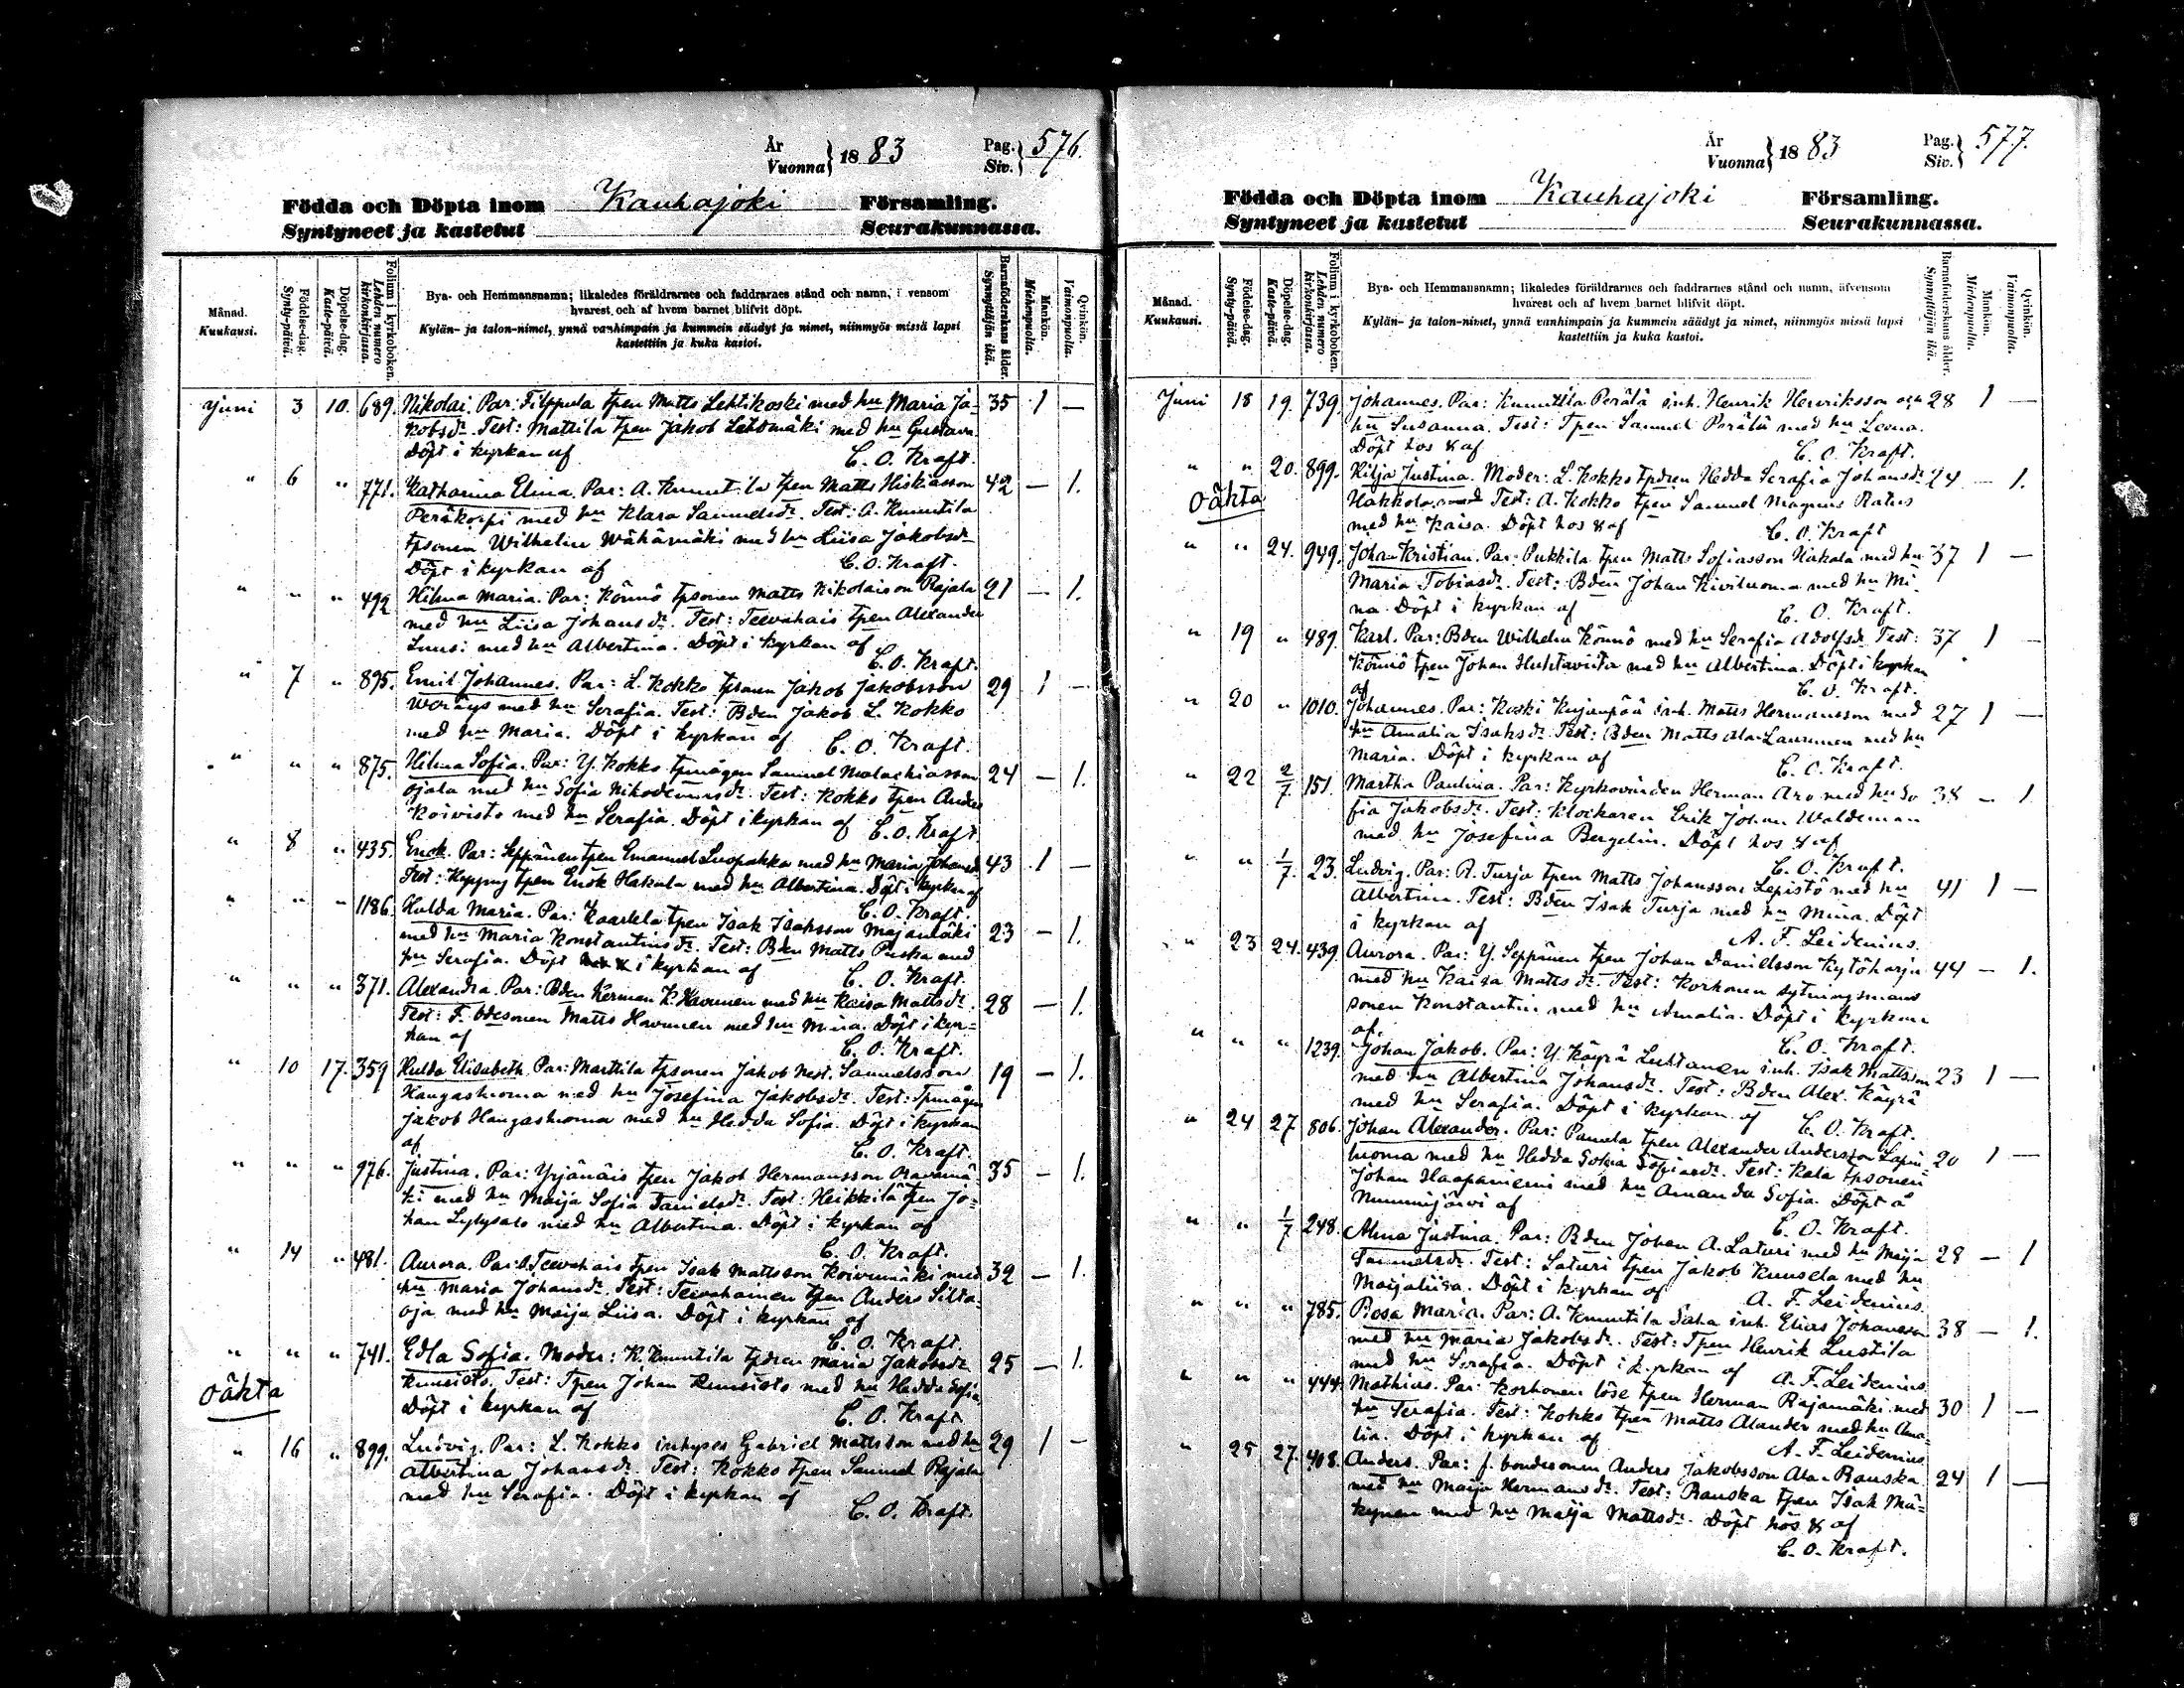 År
Vuonna } 1883
Pag.
Siv. } 576.
Födda och Döpta inom Kauhajoki Församling.
Syntyneet ja kastetut Seurakunnassa.
Månad.
Kuukausi.
Födelse-dag.
Synty-päivä.
Döpelse-dag.
Kaste-päivä.
Folium i kyrkoboken.
Lehden numero
kirkonkirjassa.
Bya- och Hemmansnamn; likaledes föräldrarnes och faddrarnes stånd och namn, i vensom
hvarest och af hvem barnet blifvit döpt.
Kylän- ja talon-nimet, ynnä vanhimpain ja kummein säädyt ja nimet, niinmyös missä lapsi
kastettiin ja kuka kastoi.
Barnaföderskans ålder.
Synnyttäjän ikä.
Mankön.
Miehenpuolta.
Qvinkön.
Vaimonpuolta.
Juni 3 10. 689. Nikolai. Par: Filppula tpen Matts Lehtikoski med hu Maria Ja- 35 1 —
kobsdr. Test: Mattila tpen Jakob Lehtimäki med hu Gustava
Döpt i kyrkan af C. O. Kraft.
" 6 " 771. Katharina Elina. Par: A. Knuutila tpen Matts Hiskiasson 42 — 1.
Peräkorpi med hu Klara Samuelsdr. Test: A. Knuutila
tpsonen Wilhelm Wähämäki med hu Liisa Jakobsdr
Döpt i kyrkan af C. O. Kraft.
" " " 492 Hilma Maria. Par: Könnö tpsonen Matts Nikolaison Rajala 21 — 1.
med hu Liisa Johansdr. Test: Teevahais tpen Alexander
Luusi med hu Albertina. Döpt i kyrkan af
C. O. Kraft.
" 7 " 895. Emil Johannes. Par: L. Kokko tpsonen Jakob Jakobsson 29 1 —
Woräys med hu Serafia. Test: Bden Jakob L. Kokko
med hu Maria. Döpt i kyrkan af C. O. Kraft.
" " " 875. Hilma Sofia. Par: Y. Kokko tpmågen Samuel Malachiasson 24 — 1.
Ojala med hu Sofia Nikodemusdr. Test: Kokko tpen Anders
Koivisto med hu Serafia. Döpt i kyrkan af C. O. Kraft.
" 8 " 435. Enok. Par: Seppänen tpen Emanuel Luopakka med hu Maria Johansdr 43 1 —
Test: tpen Enok Hakala med hu Albertina. Döpt i kyrkan af
C. O. Kraft.
" " " 1186. Hulda Maria. Par: Kaarlela tpen Isak Isaksson Majamäki 23 — 1.
med hu Maria Konstantinsdr. Test: Bden Matts Puska med
hu Serafia. Döpt i kyrkan af C. O. Kraft.
" " " 371. Alexandra. Par: Bden Herman K. Havunen med hu Kaisa Mattsdr. 28 — 1.
Test: F. bdesonen Matts Havunen med hu Mina. Döpt i kyr-
kan af C. O. Kraft.
" 10 17. 359 Hulda Elisabeth. Par: Marttila tpsonen Jakob Nest. Samuelsson 19 — 1.
Hangasluoma med hu Josefina Jakobsdr. Test: Tpmågen
Jakob Hangasluoma med hu Hedda Sofia. Döpt i kyrkan
af C. O. Kraft.
" " " 976. Justina. Par: Yrjänäis tpen Jakob Hermansson Oravamä- 35 — 1.
ki med hu Maija Sofia Danielsdr. Test: Heikkilä tpen Jo-
han Lylysalo med hu Albertina. Döpt i kyrkan af
C. O. Kraft.
" 14 " 481. Aurora. Par: Teevahais tpen Isak Mattsson Koivumäki med 32 — 1.
hu Maria Johansdr. Test: Teevahainen tpen Anders Silta-
oja med hu Maija Liisa. Döpt i kyrkan af
C. O. Kraft.
" " " 741. Edla Sofia. Moder: K. Knuutila tpdren Maria Jakobsdr 25 — 1.
oäkta
Kuusisto. Test: Tpen Johan Kuusisto med hu Hedda Sofia.
Döpt i kyrkan af C. O. Kraft.
" 16 " 899. Ludvig. Par: L. Kokko inhyses Gabriel Mattsson med hu 29 1 —
Albertina Johansdr. Test: Kokko tpen Samuel Rajala
med hu Serafia. Döpt i kyrkan af
C. O. Kraft.
År
Vuonna } 1883
Pag.
Siv. } 577.
Födda och Döpta inom Kauhajoki Församling.
Syntyneet ja kastetut Seurakunnassa.
Månad.
Kuukausi.
Födelse-dag.
Synty-päivä.
Döpelse-dag.
Kaste-päivä.
Folium i kyrkoboken.
Lehden numero
kirkonkirjassa.
Bya- och Hemmansnamn; likaledes föräldrarnes och faddrarnes stånd och namn, äfvensom
hvarest och af hvem barnet blifvit döpt.
Kylän- ja talon-nimet, ynnä vanhimpain ja kummein säädyt ja nimet, niinmyös missä lapsi
kastettiin ja kuka kastoi.
Barnaföderskans ålder.
Synnyttäjän ikä.
Mankön.
Miehenpuolta.
Qvinkön.
Vaimonpuolta.
Juni 18 19. 739. Johannes. Par: Knuuttila Perälä inh. Henrik Henriksson och 28 1 —
hu Susanna. Test: Tpen Samuel Perälä med hu Leena.
Döpt hos & af C. O. Kraft.
" " 20. 899. Hilja Justina. Moder: L. Kokko tpdren Hedda Serafia Johansdr 24 — 1.
oäkta
Hakkola. Test: A. Kokko tpen Samuel Magnus Ratus
med hu Kaisa. Döpt hos & af C. O. Kraft
" " 24. 949. Johan Kristian. Par: Pukkila tpen Matts Sofiasson Hakala med hu 37 1 —
Maria Tobiasdr. Test: Bden Johan Kiviluoma med hu Mi
na. Döpt i kyrkan af C. O. Kraft.
" 19 " 489. Karl. Par: Bden Wilhelm Könnö med hu Serafia Adolfsdr. Test: 37 1 —
Könnö tpen Johan Huhtaviita med hu Albertina. Döpt i kyrkan
af C. O. Kraft.
" 20 " 1010. Johannes. Par: Koski Kujanpää inh. Matts Hermansson med 27 1 —
hu Amalia Isaksdr. Test: Bden Matts Ala-Laurunen med hu
Maria. Döpt i kyrkan af C. O. Kraft.
" 22 2/7 151. Martha Paulina. Par: Kyrkovärden Herman Aro med hu So 38 — 1
fia Jakobsdr. Test: Klockaren Erik Johan Waldeman
med hu Josefina Bergelin. Döpt hos & af
C. O. Kraft.
" " 1/7. 23. Ludvig. Par: A. Turja tpen Matts Johansson Lepistö med hu 41 1 —
Albertina. Test: Bden Isak Turja med hu Mina. Döpt
i kyrkan af A. F. Leidenius.
" 23 24. 439. Aurora. Par: Y. Seppänen tpen Johan Danielsson Kytöharju 44 — 1.
med hu Kaisa Mattsdr. Test: Korhonen sytningsmans
sonen Konstantin med hu Amalia. Döpt i kyrkan
af. C. O. Kraft.
" " " 1239. Johan Jakob. Par: Y. Käyrä Luhtanen inh. Isak Mattsson 23 1 —
med hu Albertina Johansdr. Test: Bden Alex. Käyrä
med hu Serafia. Döpt i kyrkan af C. O. Kraft.
" 24 27 806. Johan Alexander. Par: Pamela tpen Alexander Andersson Lapin- 20 1 —
luoma med hu Hedda Sofia Sofiasdr. Test: Kala tpsonen
Johan Haapaniemi med hu Amanda Sofia. Döpt å
Nummijärvi af C. O. Kraft.
" " 1/7 248. Alma Justina. Par: Bden Johan A. Laturi med hu Maija 28 — 1
Samuelsdr. Test: Laturi tpen Jakob Kuusela med hu
Maijaliisa. Döpt i kyrkan af A. F. Leidenius.
" " " 785. Rosa Maria. Par: A. Knuutila Saha inh. Elias Johansson 38 — 1.
med hu Maria Jakobsdr. Test: Tpen Henrik Lustila
med hu Serafia. Döpt i kyrkan af A. F. Leidenius.
" " " 444. Mathias. Par: Korhonen löse tpen Herman Rajamäki med 30 1 —
hu Serafia. Test: Kokko tpen Matts Alander med hu Ama-
lia. Döpt i kyrkan af A. F. Leidenius
" 25 27. 408. Anders. Par: f. bondesonen Anders Jakobsson Ala-Rauska 24 1 —
med hu Maija Hermansdr. Test: Rauska tpen Isak Mä-
kynen med hu Maija Mattsdr. Döpt hos & af
C. O. Kraft.